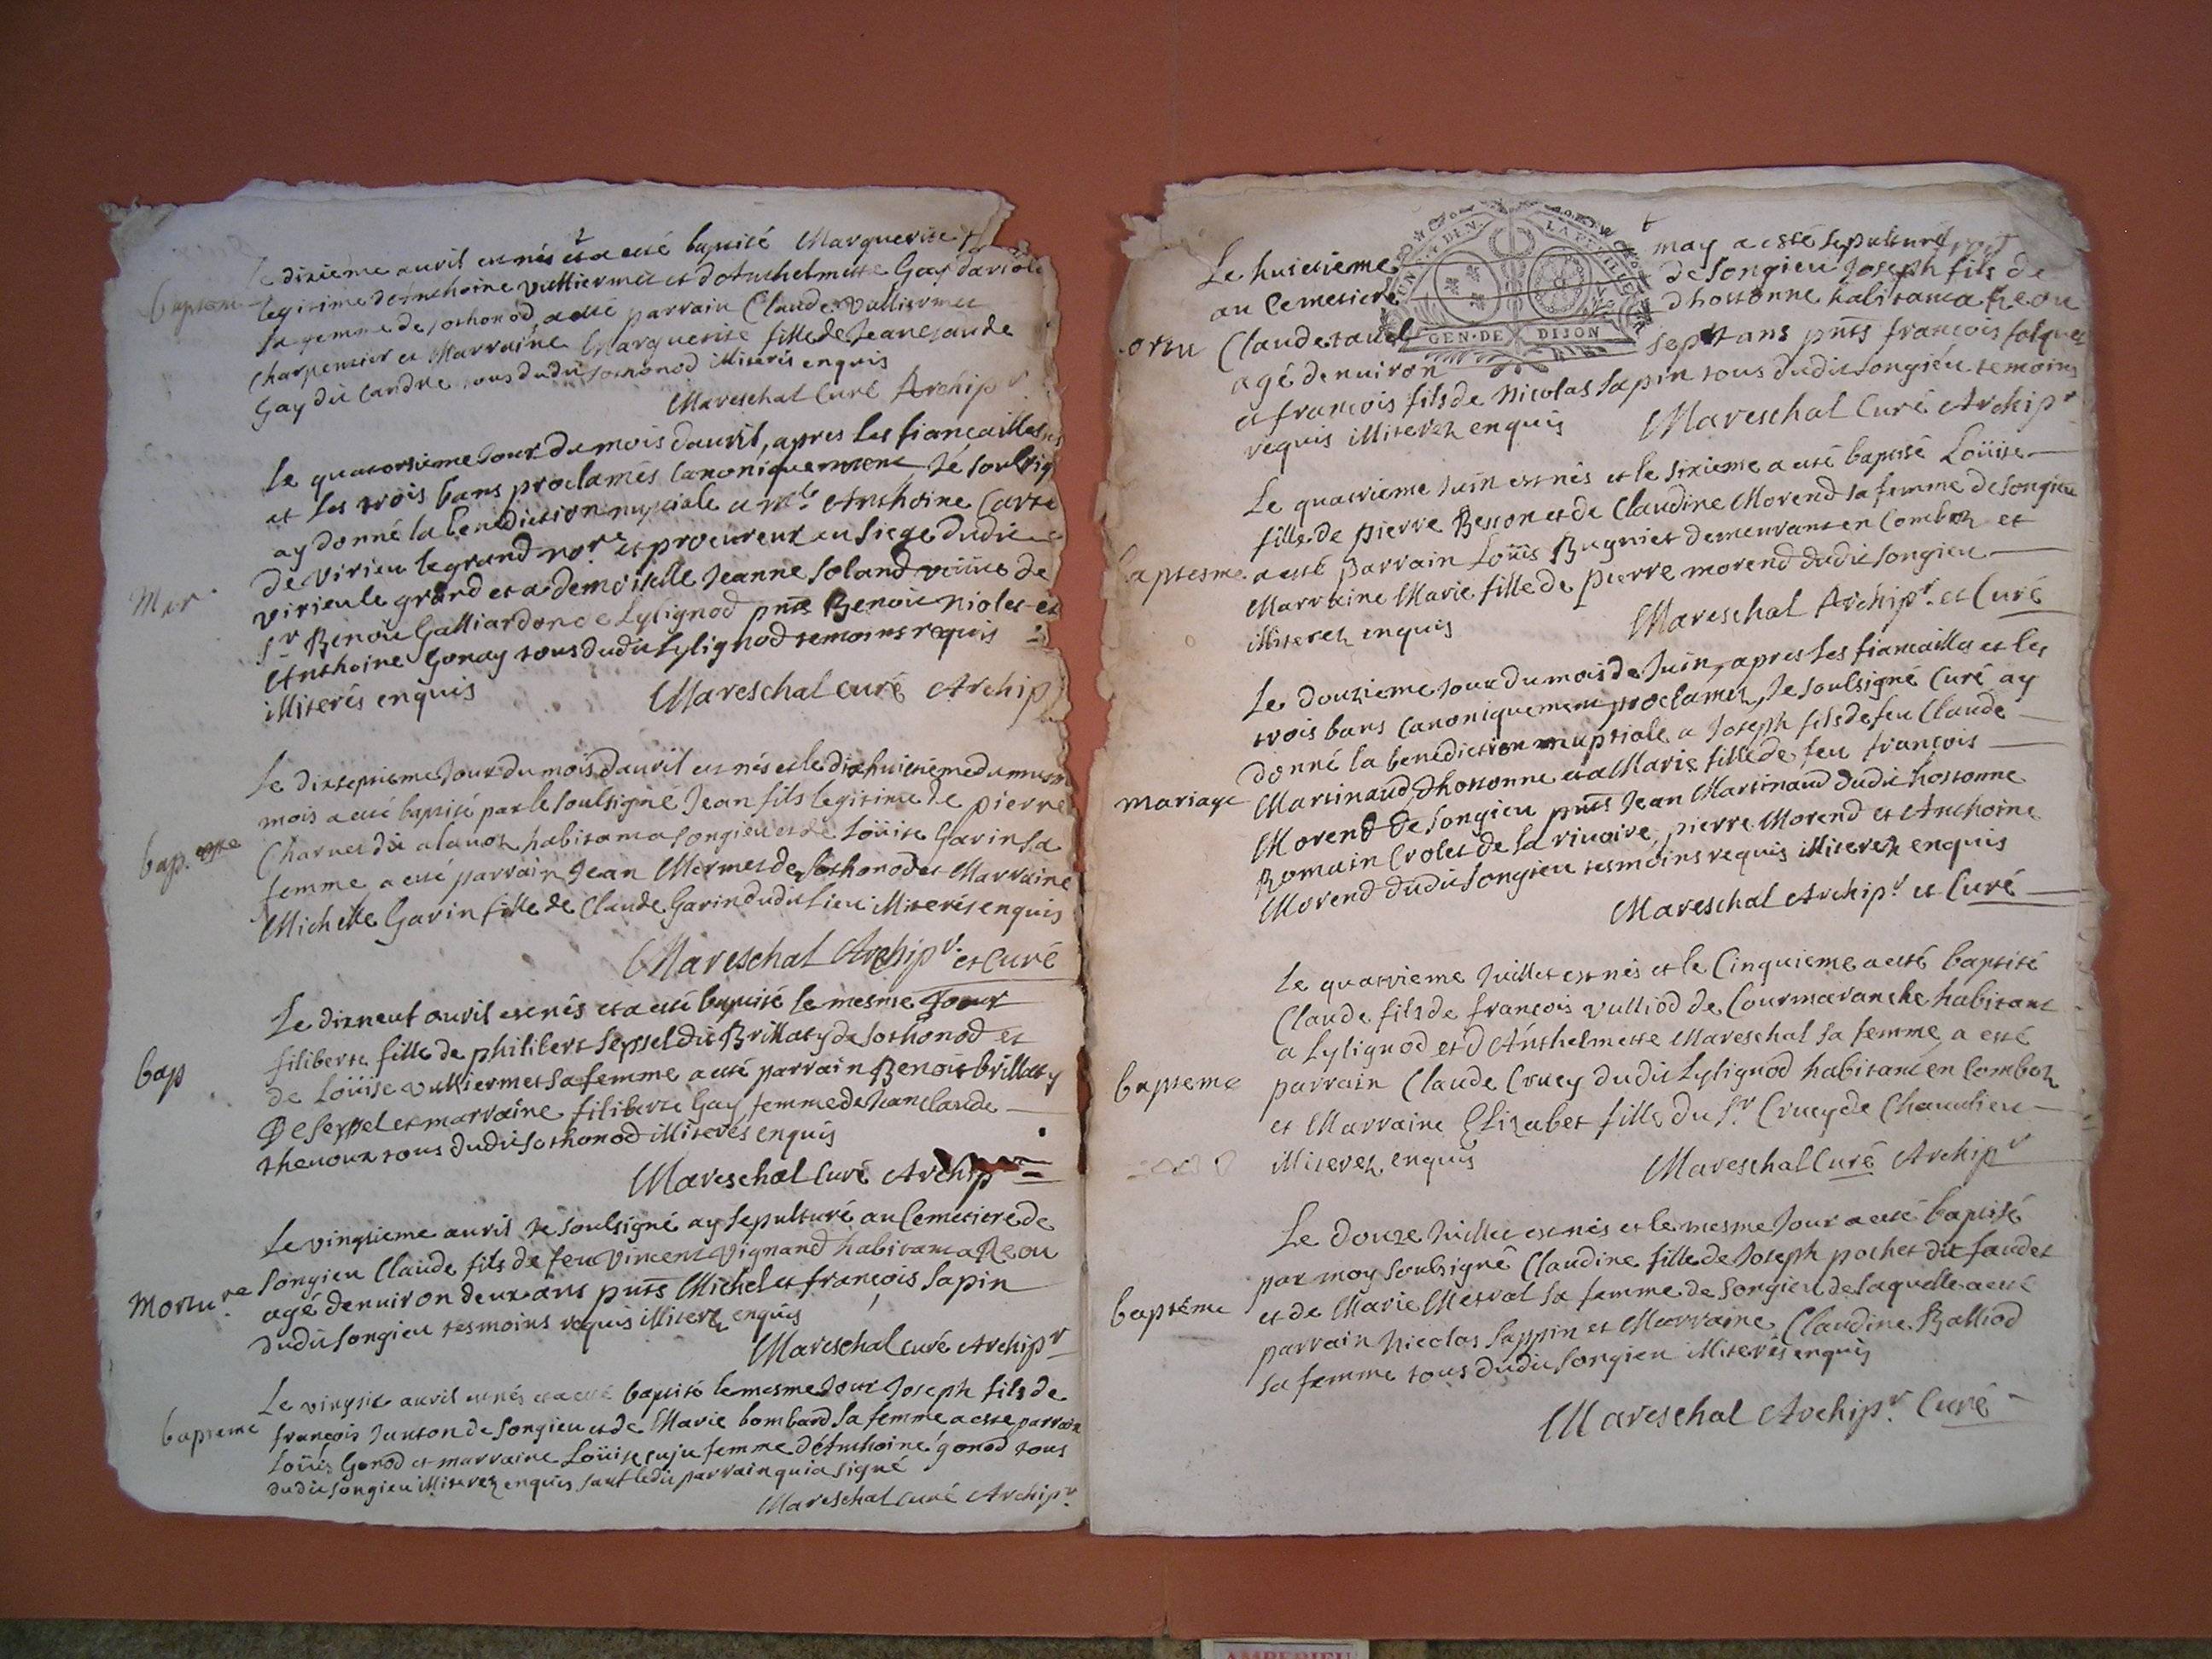 Le dixieme auril est nés et a esté baptisé Marguerite
baptem legitime d'Anthoine vulliermet et d'Anthelmette Gay dariole
sa femme de sothonod a esté parrain Claude vulliermet
charpentier et Marraine Marguerite fille de Jeanclaude
Gay dit Candre tous dudit sothonod illiterés enquis
Mareschal Curé Archipr
Le quatorsieme Jour du mois dauril, apres les fiancailles
et les trois bans proclamés Canoniquement Je soulsig
ay donné la benediction nuptiale a Me Anthoine Carte
de virieu le grand nore et procureur au siege dudit
Mar virieu le grand et a demoiselle Jeanne soland veüue de
sr Benoit Galliardon de Lylignod pnts Benoit niolet et
Anthoine Gonay tous dudit Lylignod temoins requis
illiterés enquis Mareschal curé Archip
Le dixseptieme Jour du mois dauril est nés et le dixhuictieme du mesm
mois a esté baptisé par le soulsigné Jean fils legitime de pierre
bap. Charuet dit alauoz habitant a songieu et de Loüise Garin sa
femme a esté parrain Jean Mermet de sothonod et Marraine
Michelle Garin fille de Claude Garin dudit lieu illiterés enquis
Mareschal Archipr. et Curé
Le dixneuf auril est nés et a esté baptisé le mesme Jour
filiberte fille de philibert seyssel dit Brillaty de sothonod et
bap de Loüise vulliermet sa femme a esté parrain Benoit brillaty
De seyssel et marraine filiberte Gay femme de Jeanclaude
thenoux tous dudit sothonod illiterés enquis
Mareschal Curé Archip
Le vingtieme auril Je soulsigné ay sepulturé au Cemetiere de
Morture songieu Claude fils de feu vincent vignand habitant a Reou
agé denuiron deux ans pnts Michel et françois sapin
dudit songieu tesmoins requis illiterz enquis
Mareschal curé Archipr
Le vingsix auril est nés et a esté baptisé le mesme Jour Joseph fils de
bapteme françois Janton de songieu et de Marie bombard sa femme a esté parrain
Loüis Gonod et marraine Loüise cuju femme d'Anthoine gonod tous
dudit songieu illiterez enquis sauf ledit parrain qui a signé
Mareschal curé Archipr.
Le huictieme may a esté sepulturé
au Cemetiere de songieu Joseph fils de
ortu Claude dhostonne habitant a Reou
GEN·DE DIJON
agé denuiron sept ans pnts françois
et françois fils de Nicolas sapin tous dudit songieu temoins
requis illiterez enquis Mareschal Curé Archipr
Le quatrieme Juin est nés et le sixieme a esté baptisé Loüise
fille de pierre Besson et de Claudine Morend sa femme de songieu
aptesme a esté parrain Loüis Bugniet demeurant en Combez et
Marraine Marie fille de pierre morend dudit songieu
illiterez enquis Mareschal Archipr. et Curé
Le douzieme Jour du mois de Juin, apres les fiancailles et les
trois bans canoniquement proclamez, Je soulsigné Curé ay
donné la benediction nuptiale a Joseph fils de feu Claude
mariage Martinaud, dhostonne et a Marie fille de feu françois
Morend de songieu pnts Jean Martinaud dudit hostonne
Romain Crolet de la riuoire, pierre Morend et Anthoine
Morend dudit songieu tesmoins requis illiterez enquis
Mareschal Archipr et Curé
Le quatrieme Juillet est nés et le Cinquieme a esté baptisé
Claude fils de françois vulliod de Courmaranche habitant
a Lylignod et d'Anthelmette Mareschal sa femme, a esté
bapteme parrain Claude Cruey dudit Lylignod habitant en Combez
et Marraine Elizabet fille du sr. Cruey de Chauulieu
illiterez enquis Mareschal Curé Archipr
Le douze Juillet est nés et le mesme Jour a esté baptisé
par moy soulsigné Claudine fille de Joseph pochet dit faudet
bapteme et de Marie Mestral sa femme de songieu de laquelle a esté
parrain Nicolas sappin et Marraine Claudine Balliod
sa femme tous dudit songieu illiterés enquis
Mareschal Archipr. Curé